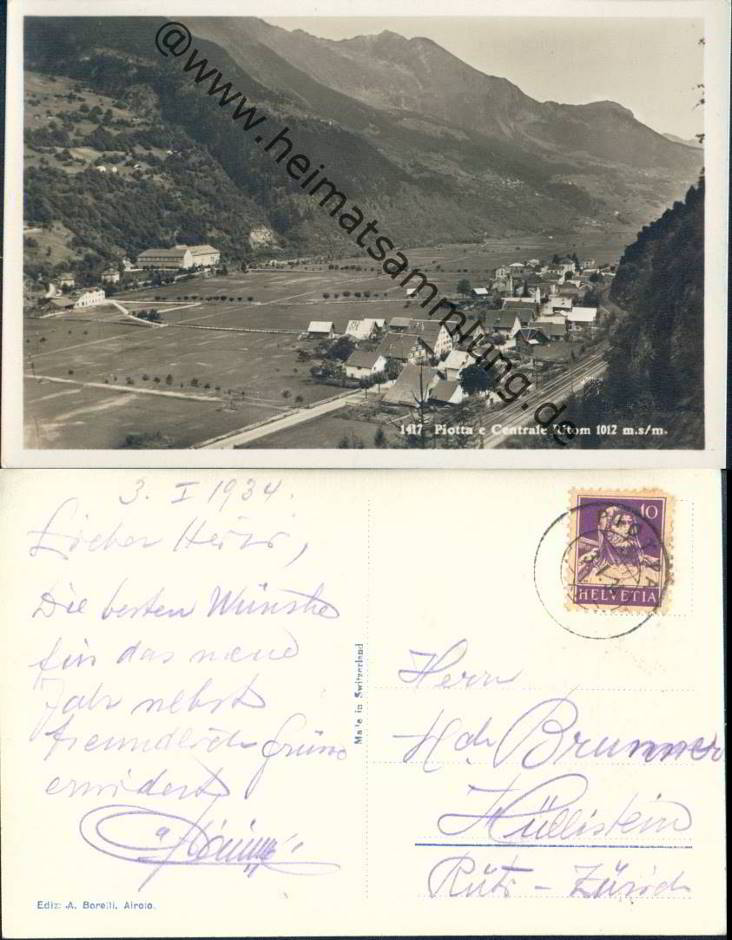 @www.heimatsammlung.de
1417 Piotta e Centrale Ritom 1012 m.s/m.
3. I 1934.
Lieber Heiri,
Die besten Wünsche
für das neue
Jahr nebst
freundlich Grüsse
erwidert
10
HELVETIA
Made in Switzerland
Herrn
Hch Brunner
Hüllistein
Rüti - Zürich
Ediz: A. Borelli, Airolo.